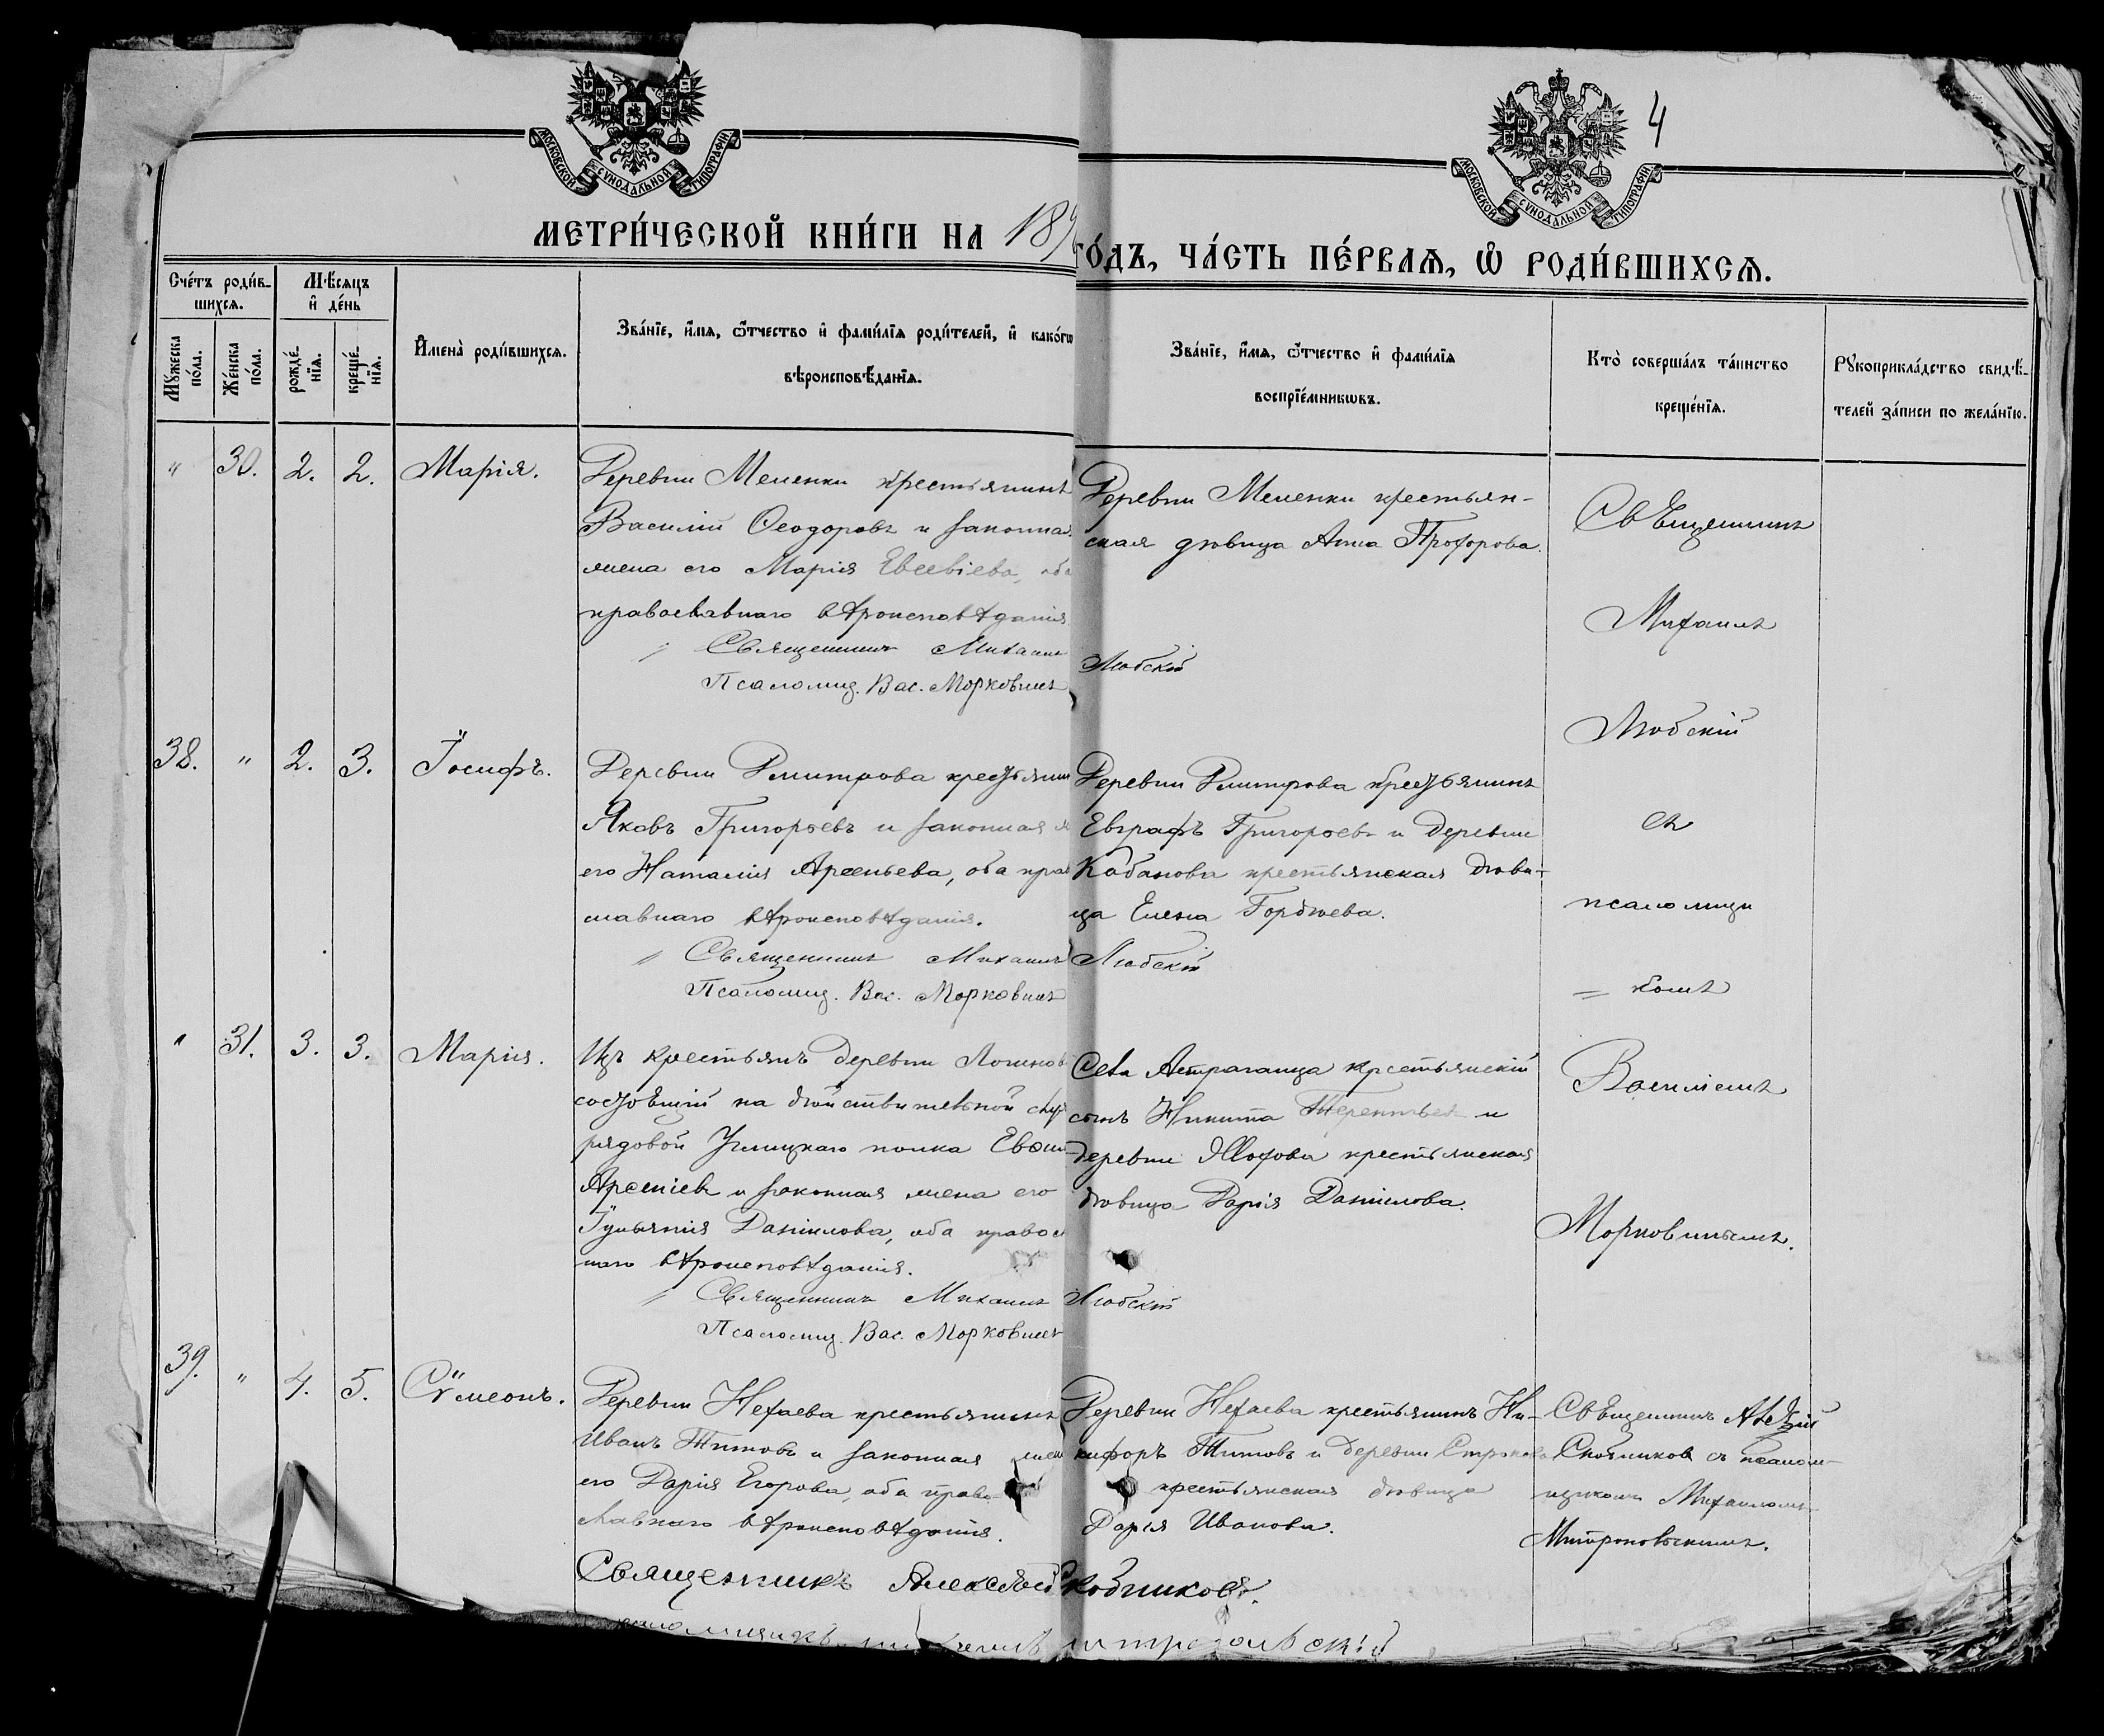 МОСКОВСКОЙ СѴНОДАЛЬНОЙ ТИПОГРАФІИ
МОСКОВСКОЙ СѴНОДАЛЬНОЙ ТИПОГРАФІИ
4
МЕТРИ́ЧЕСКОЙ КНИ́ГИ НА 18
ГО́ДЪ, ЧА́СТЬ ПЕ́РВАѦ, Ѡ҆ РОДИ́ВШИХСѦ.
Сче́тъ роди́в-
шихсѧ.
Мѣ́сѧцъ
и҆ де́нь
Мꙋ́жеска по́ла.
Же́нска по́ла.
рожде́-
нїѧ.
креще́-
нїѧ.
И҆мена̀ роди́вшихсѧ.
Зва́нїе, и҆́мѧ, ѻ҆́тчество и҆ фами́лїѧ роди́телей, и҆ како́гѡ
вѣроисповѣ́данїѧ.
Зва́нїе, и҆́мѧ, ѻ҆́тчество и҆ фами́лїѧ
воспрїе́мникѡвъ.
Кто̀ соверша́лъ та́инство
креще́нїѧ.
Рꙋкоприкла́дство свидѣ́-
телей за́писи по жела́нїю.
" 30. 2. 2. Марія.
Деревни Меленки крестьянинъ
Василій Ѳеодоровъ и законная
жена его Марія Евсевіева, оба
православнаго вѣроисповѣданія
Священникъ Михаилъ Любскій
Псаломщ. Вас. Морковинъ
Деревни Меленки крестьян-
ская дѣвица Анна Прохорова.
Священникъ
Михаилъ
Любскій
съ
псаломщи
= комъ
Василіемъ
Морковинымъ.
38. " 2. 3. Іосифъ.
Деревни Дмитрова крестьянин
Яковъ Григорьевъ и законная ж
его Наталія Арсеньева, оба прав
славнаго вѣроисповѣданія.
Священникъ Михаилъ Любскій
Псаломщ. Вас. Морковинъ
Деревни Дмитрова крестьянинъ
Евграфъ Григорьевъ и деревни
Кабанова крестьянская дѣви-
ца Елена Гордѣева.
" 31. 3. 3. Марія.
Изъ крестьянъ деревни Логинов
состоящій на дѣйствительной служ
рядовой Углицкаго полка Евѳим
Арсеніевъ и законная жена его
Іуліанія Даниилова, оба правосл
наго вѣроисповѣданія.
Священникъ Михаилъ Любскій
Псаломщ. Вас. Морковинъ
Села Астраганца крестьянскій
сынъ Никита Терентьевъ и
деревни Мохова крестьянская
дѣвица Дарія Даниилова.
39. " 4. 5. Сѵмеонъ.
Деревни Нехаева крестьянинъ
Иванъ Титовъ и законная жена
его Дарія Егорова, оба право-
славнаго вѣроисповѣданія.
Священникъ Алексѣй Скобниковъ.
Деревни Нехаева крестьянинъ Ни-
кифоръ Титовъ и деревни
крестьянская дѣвица
Дарія Иванова.
Священникъ Алексѣй
Скобниковъ съ псалом-
щикомъ Михаиломъ
Митропольскимъ.